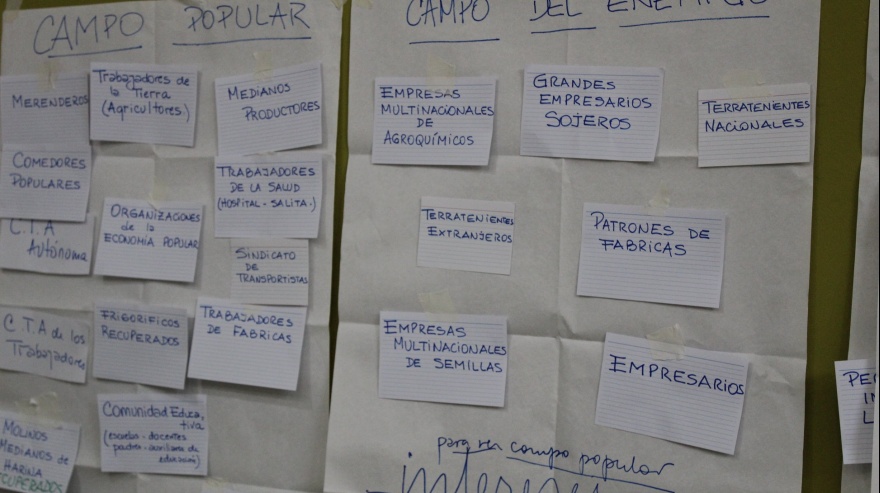 CAMPO POPULAR
MERENDEROS
Trabajadores de
la Tierra
(Agricultores.)
MEDIANOS
PRODUCTORES
COMEDORES
POPULARES
TRABAJADORES
DE LA SALUD
(HOSPITAL - SALITA.)
C.T.A
Autónoma
ORGANIZACIONES
de la
ECONOMÍA POPULAR
SINDICATO
DE
TRANSPORTISTAS
C.T.A de los
Trabajadores
FRIGORIFICOS
RECUPERADOS
TRABAJADORES
DE FABRICAS
MOLINOS
MEDIANOS de
HARINA
CUPERADOS
COMUNIDAD EDUCA,
tiva
(escuelas - docentes
padres - auxiliares de
educación)
CAMPO DEL ENEMIGO
EMPRESAS
MULTINACIONALES
DE
AGROQUÍMICOS
GRANDES
EMPRESARIOS
SOJEROS
TERRATENIENTES
NACIONALES
TERRATENIENTES
EXTRANJEROS
PATRONES DE
FABRICAS
EMPRESAS
MULTINACIONALES
DE SEMILLAS
EMPRESARIOS
para ver campo popular
PE
I
L